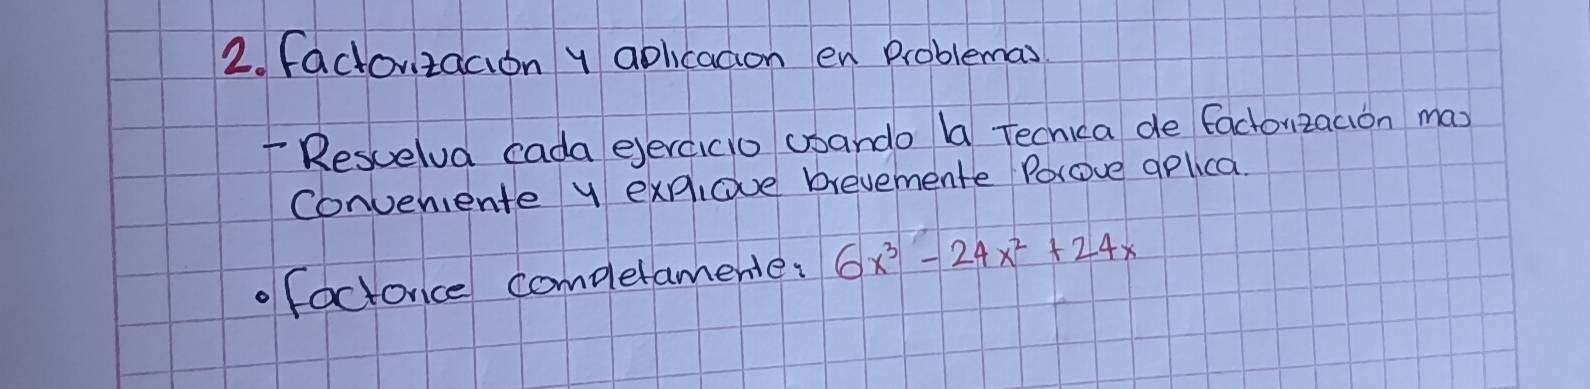 2. Factorización y aplicacion en Problemas.
- Resuelva cada ejercicio usando la Tecnica de factorización mas
Conveniente y explique brevemente Porque aplica.
• Factorice completamente: 6x³ - 24x² + 24x